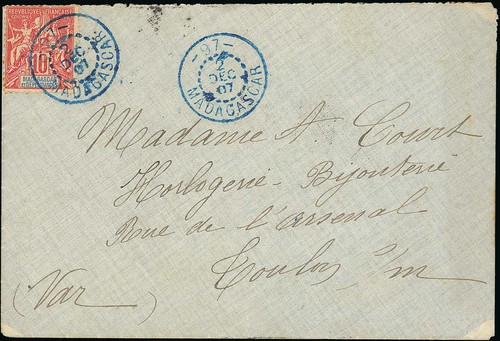 REPUBLIQUE FRANÇAISE
10
MADAGASCAR
97
DEC
07
MADAGASCAR
97
2
DEC
07
MADAGASCAR
Madame A. Court
Horlogerie - Bijouterie
Rue de l'arsenal
Toulon s/m
(Var)